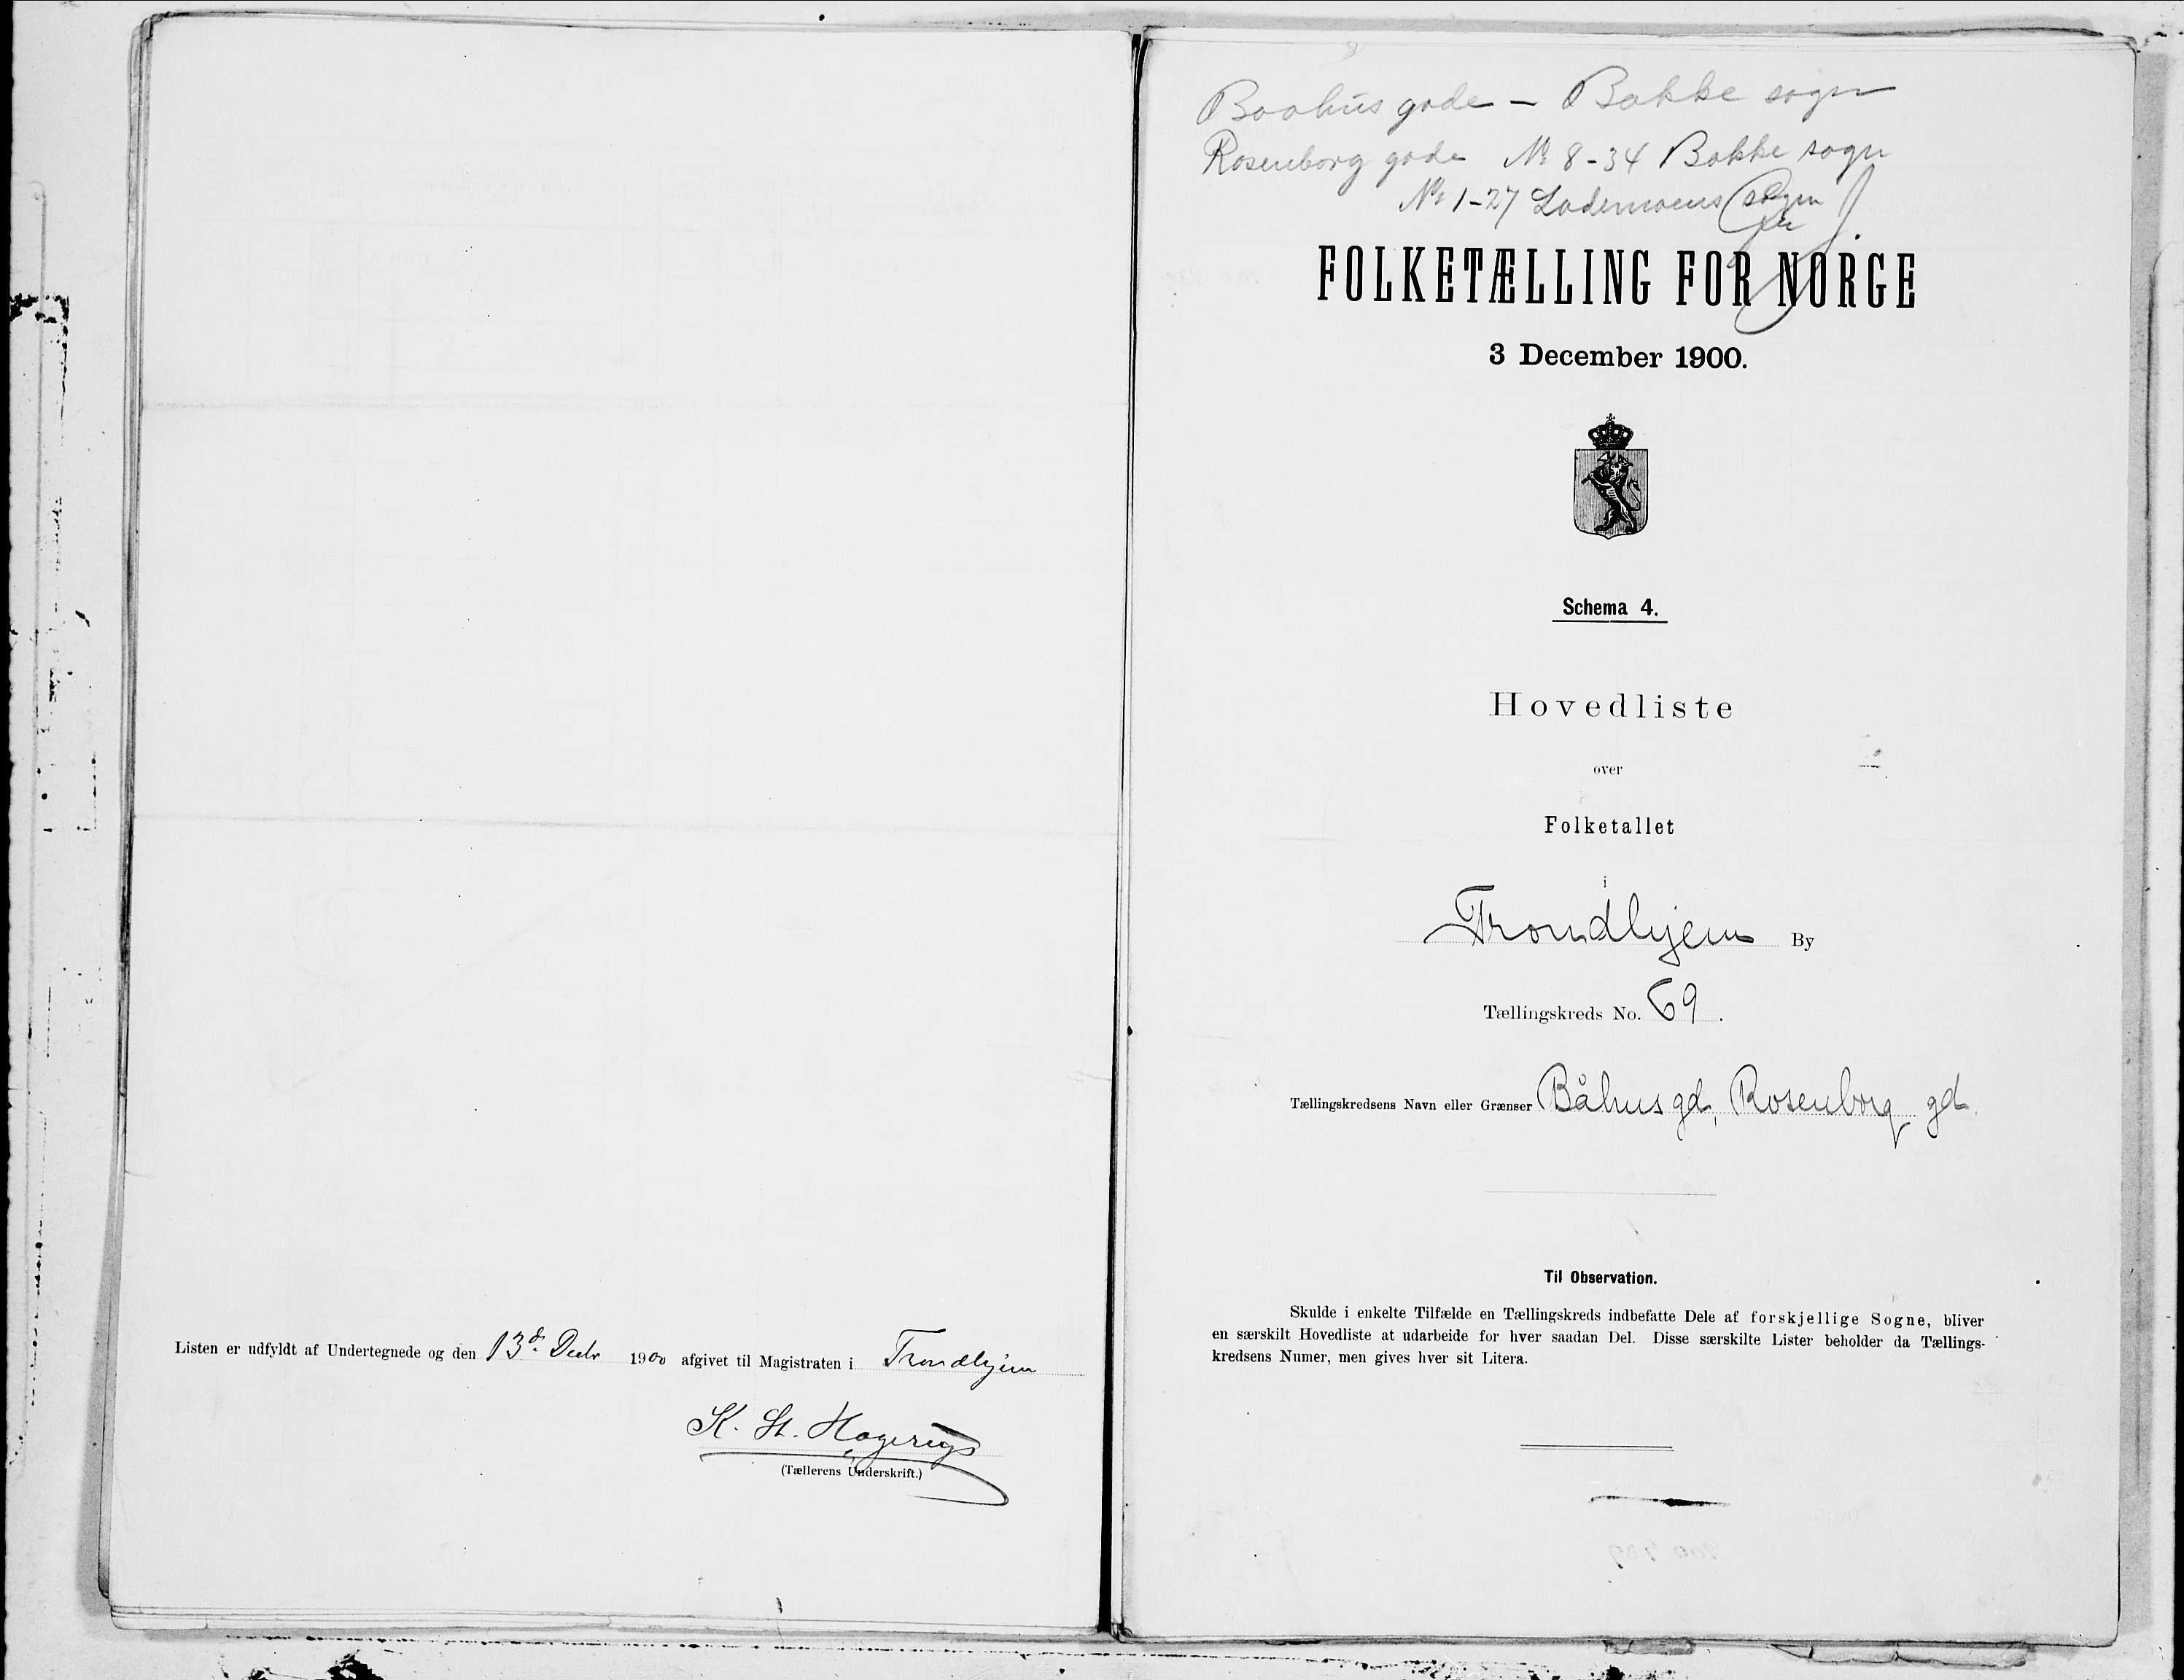 Listen er udfyldt af Undertegnede og den 13d. Decbr 1900 afgivet til Magistraten i Trondhjem
K. St. Hagerup
(Tællerens Underskrift.)
Baahus gade - Bakke sogn
Rosenborg gade No 8-34 Bakke sogn
No 1-27 Lademoens sogn
FOLKETÆLLING FOR NORGE
3 December 1900.
Schema 4.
Hovedliste
over
Folketallet
i
Trondhjem By
Tællingskreds No. 69.
Tællingskredsens Navn eller Grænser Båhus gd, Rosenborg gd.
Til Observation.
Skulde i enkelte Tilfælde en Tællingskreds indbefatte Dele af forskjellige Sogne, bliver
en særskilt Hovedliste at udarbeide for hver saadan Del. Disse særskilte Lister beholder da Tællings-
kredsens Numer, men gives hver sit Litera.